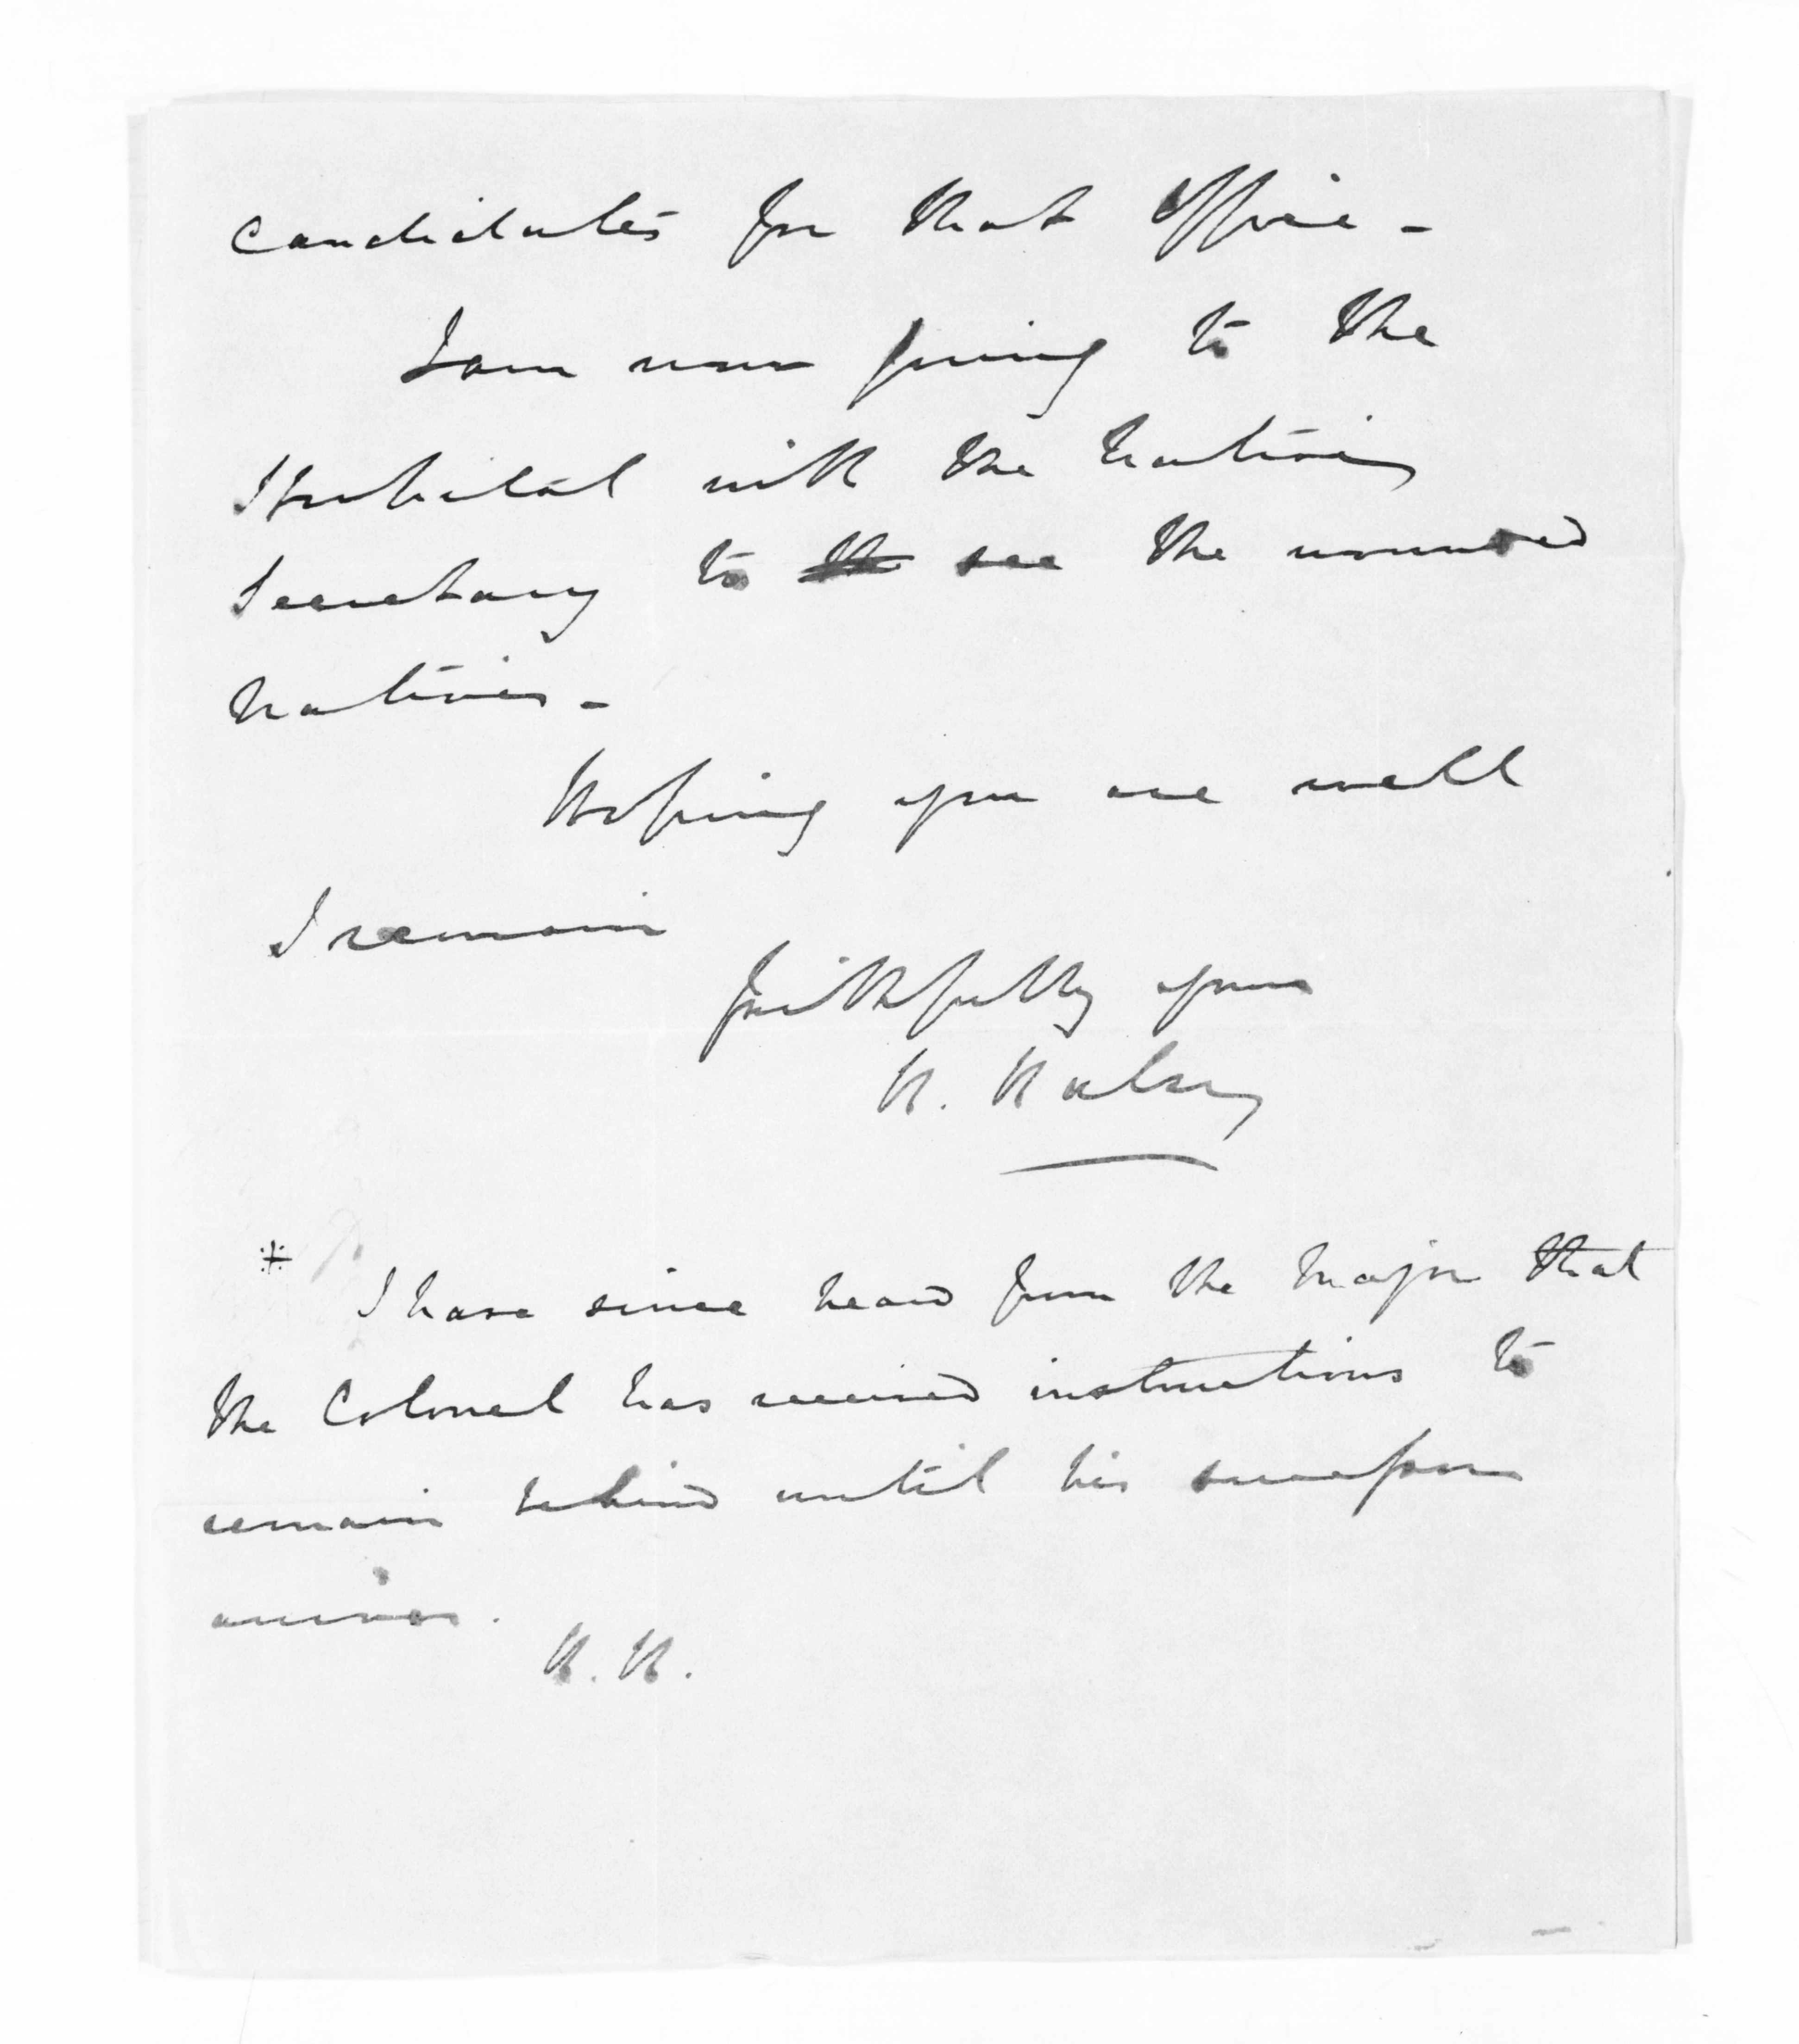 candidates for that Office -
I am now going to the
Hospital with the Native
Secretary to see the wounded
Natives -
Hoping you are well
I remain
faithfully yours
H. Halse
* I have since heard from the Major that
the Colonel has received instructions to
remain behind until his successor
arrives.
H. H.